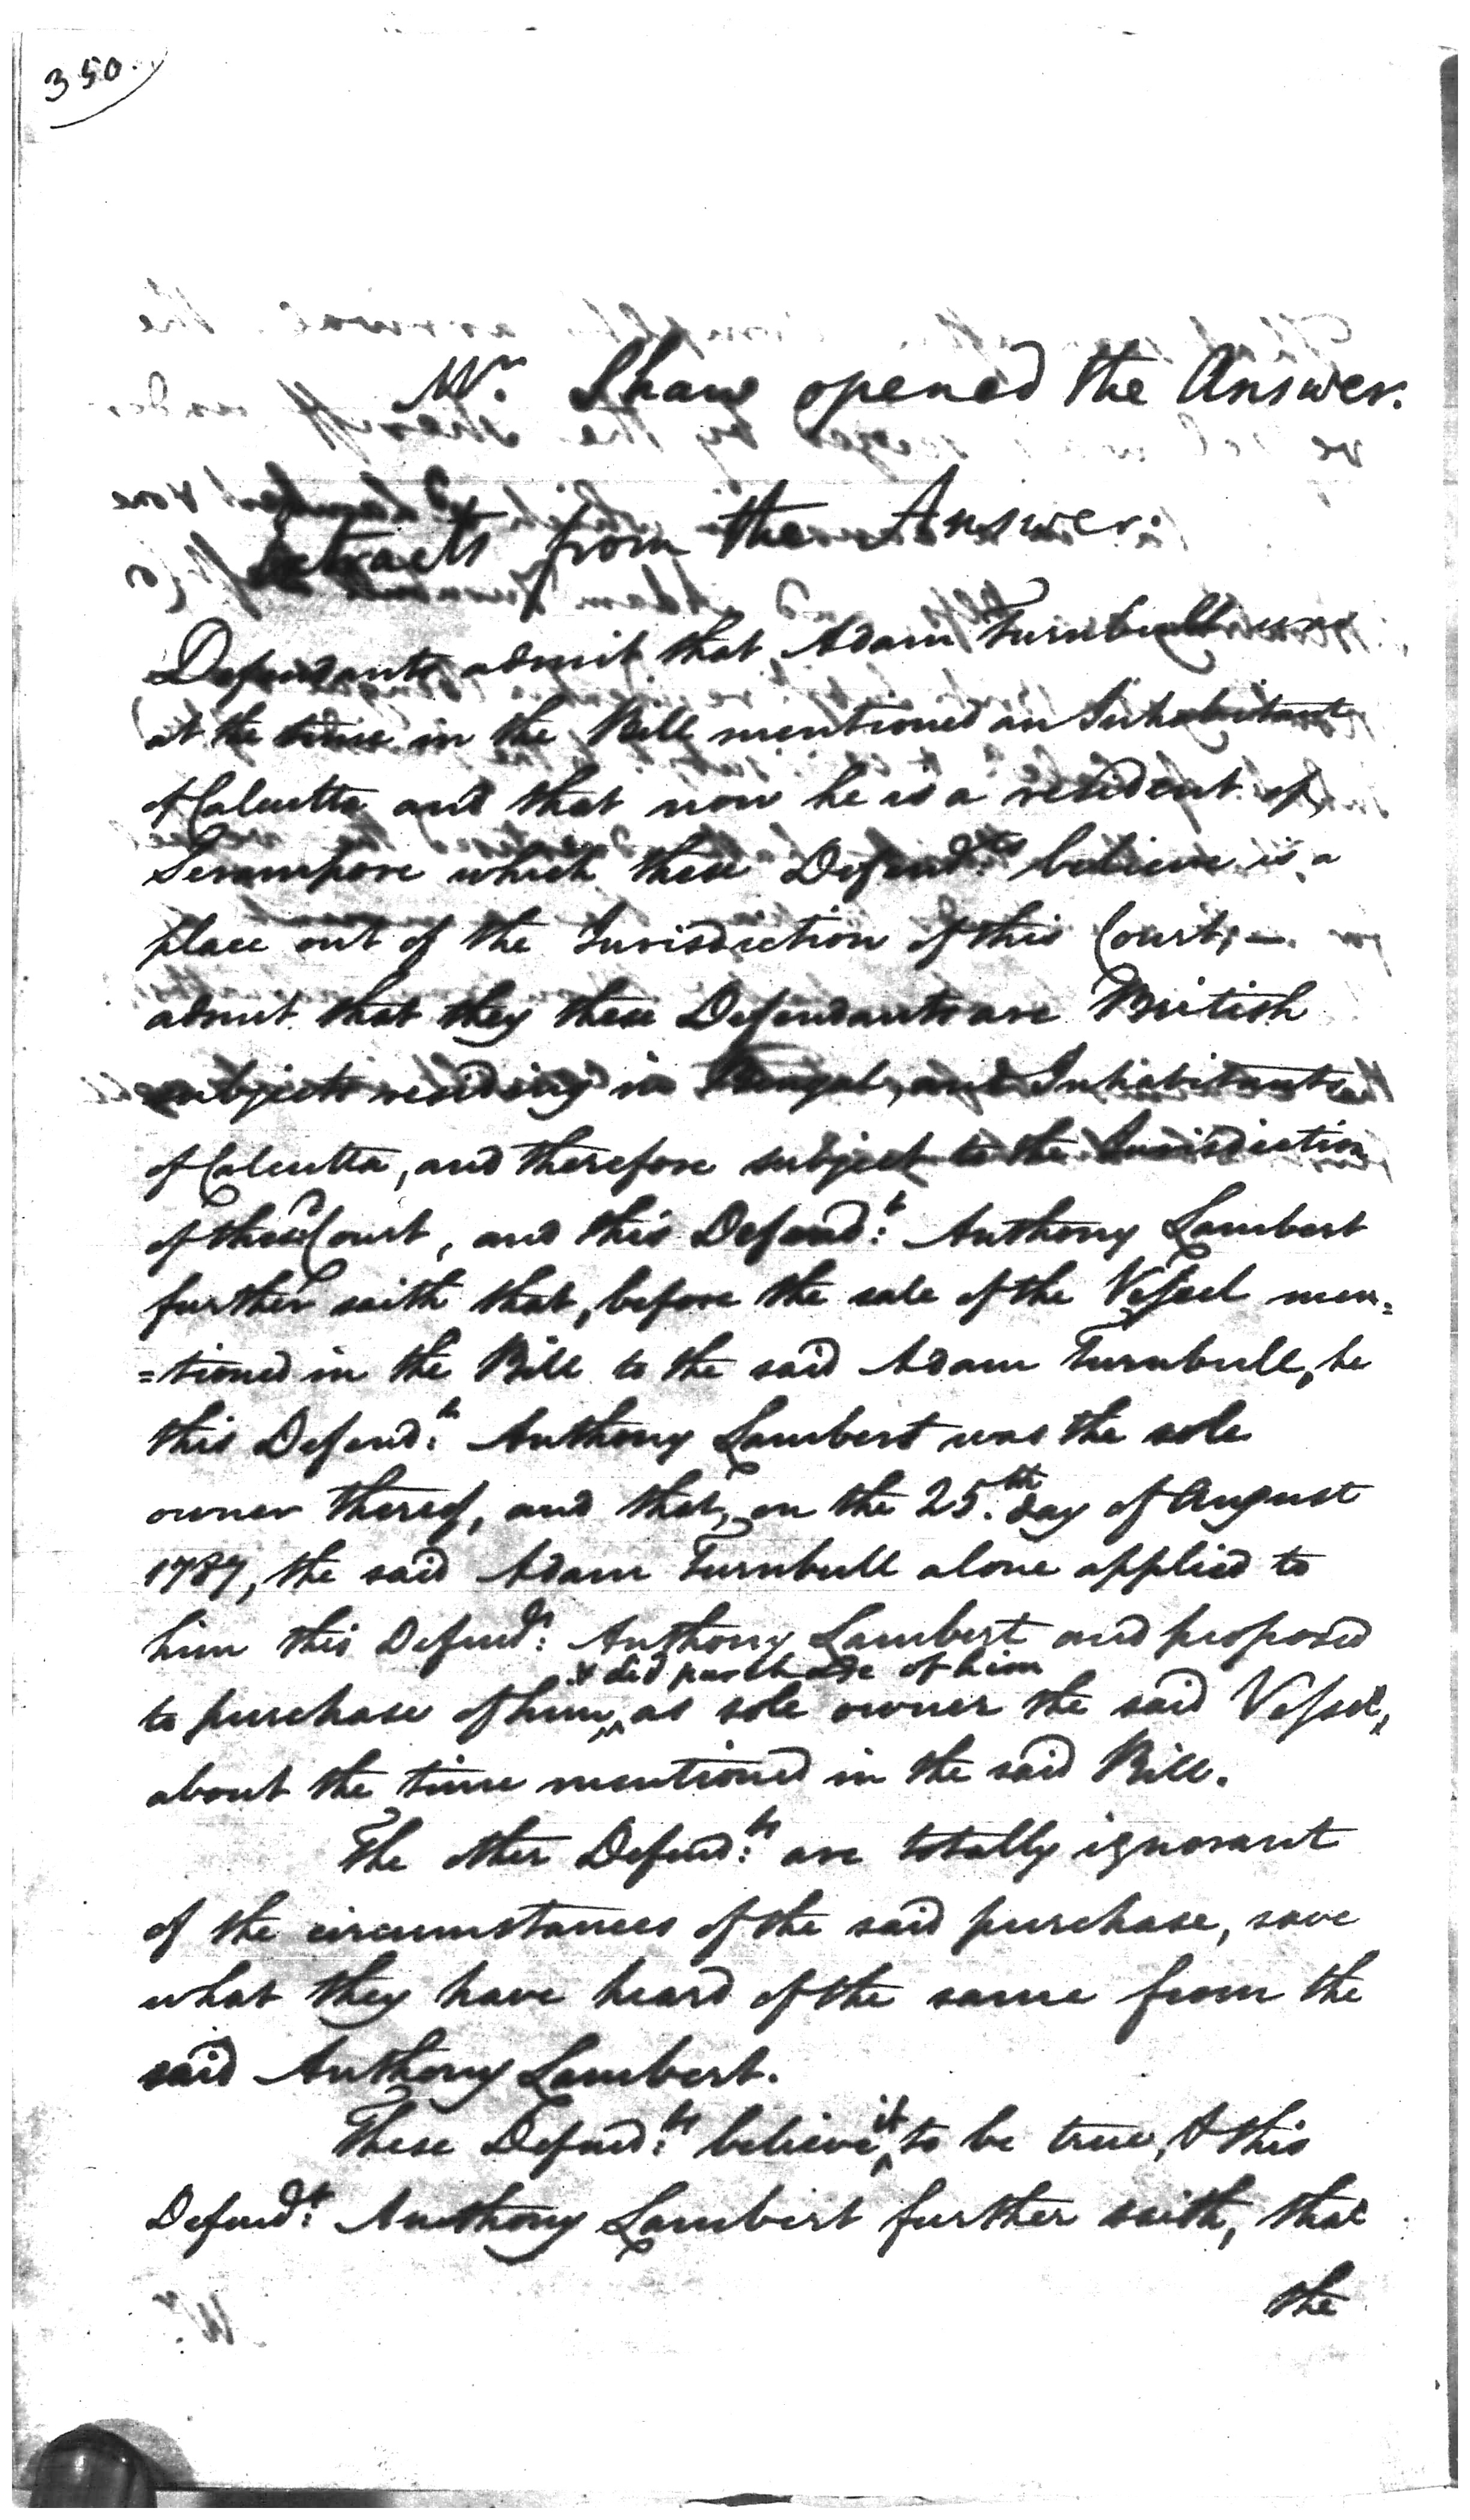 350.
Mr. Shaw opened the Answer.
Extracts from the Answer:
Defendants admit that Adam Turnbull was
at the time in the Bill mentioned an Inhabitant
of Calcutta and that now he is a resident of
Serampore which these Defend.ts believe is a
place out of the Jurisdiction of this Court; –
admit that they these Defendants are British
subjects residing in Bengal, and Inhabitants
of Calcutta, and therefore subject to the Jurisdiction
of this Court, and this Defend.t Anthony Lambert
further saith that, before the sale of the Vessel men=
=tioned in the Bill to the said Adam Turnbull, he
this Defend.t Anthony Lambert was the sole
owner thereof, and that, on the 25.th day of August
1787, the said Adam Turnbull alone applied to
him this Defend.t Anthony Lambert and proposed
to purchase of him, & did purchase of him as sole owner the said Vessel,
about the time mentioned in the said Bill.
The other Defend.ts are totally ignorant
of the circumstances of the said purchase, save
what they have heard of the same from the
said Anthony Lambert.
These Defend.ts believe it to be true, & this
Defend.t Anthony Lambert further saith, that
the